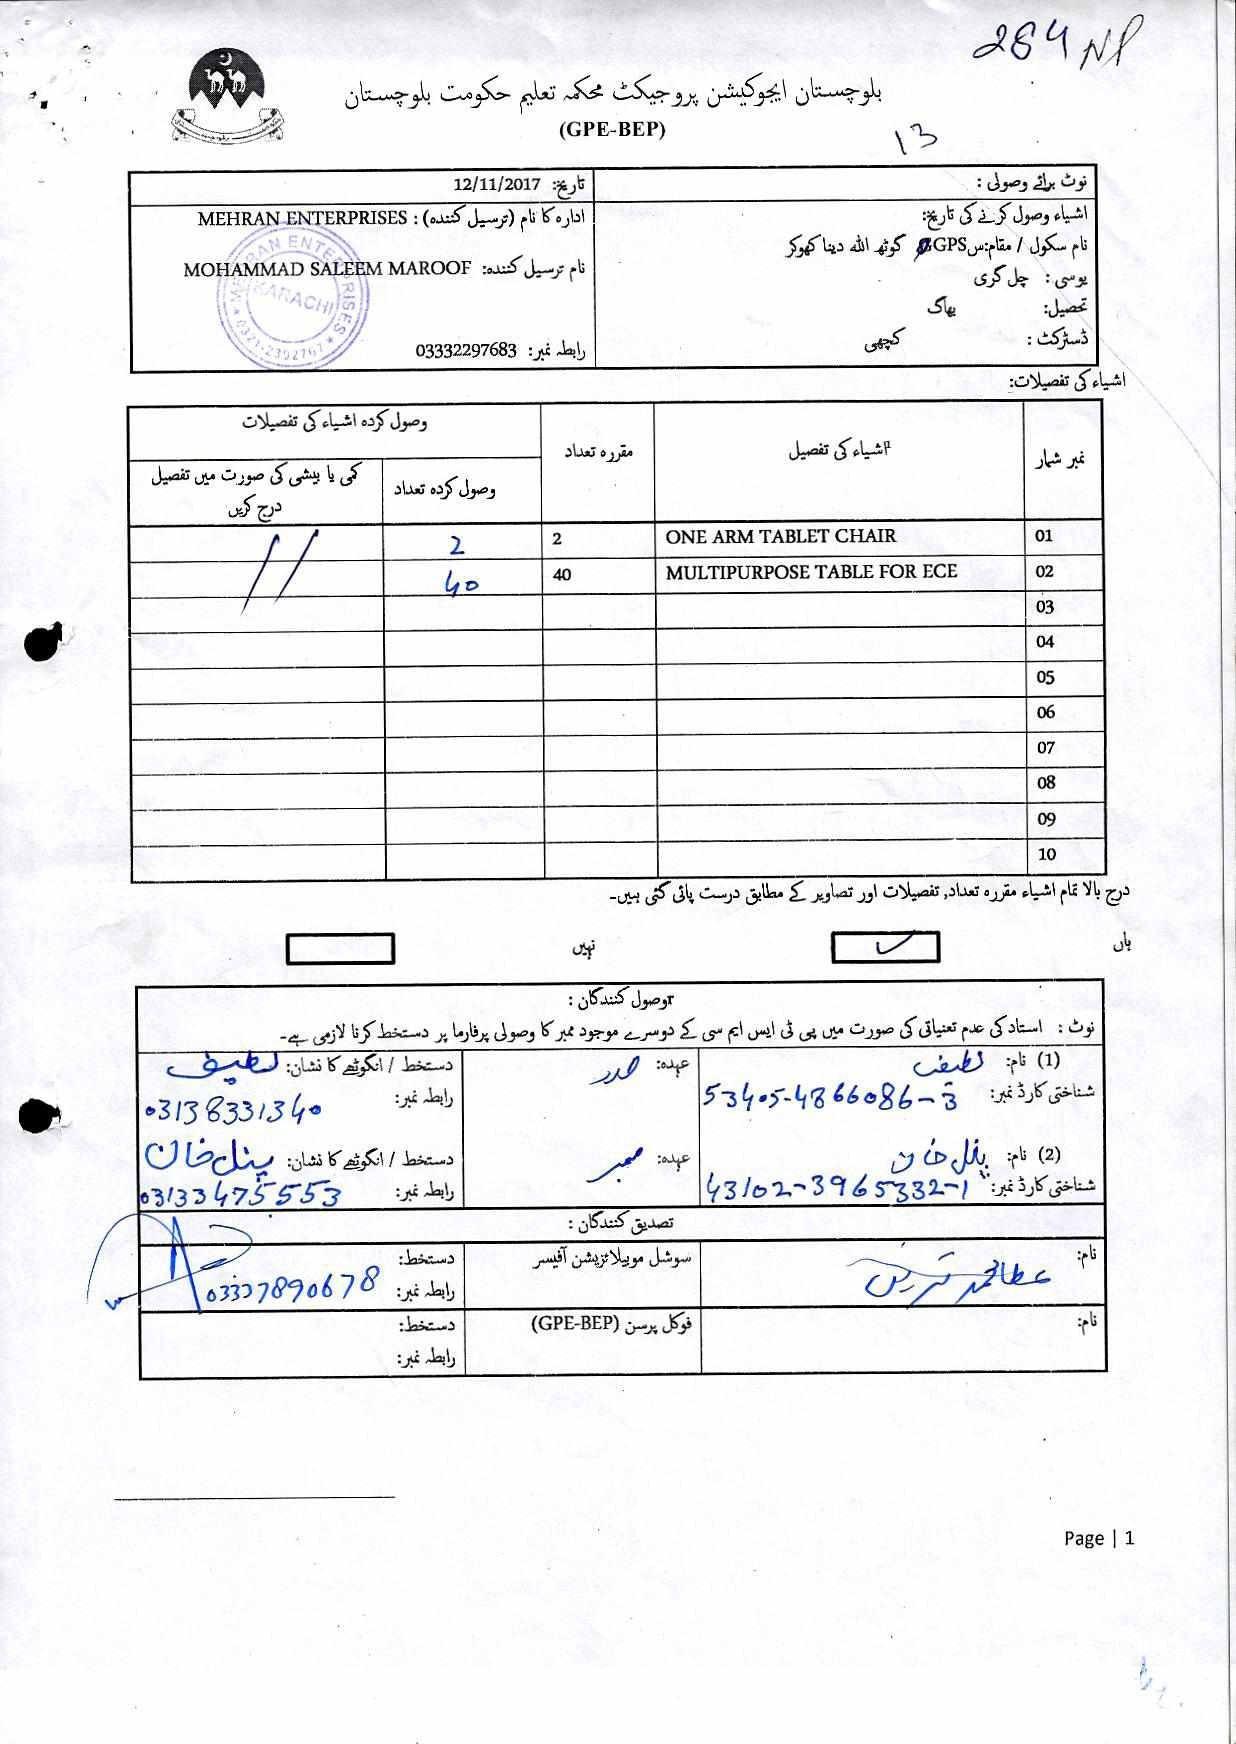 284 NP
بلوچستان ایجوکیشن پروجیکٹ محکمہ تعلیم حکومت بلوچستان
(GPE-BEP)
13
نوٹ برائے وصولی :
تاریخ: 12/11/2017
اشیاء وصول کرنے کی تاریخ:
نام سکول / مقام:س GPS گوٹھ اللہ دینا کھوکر
یوسی : چل گری
تحصیل: بھاگ
ڈسٹرکٹ : کچھی
ادارہ کا نام (ترسیل کنندہ) : MEHRAN ENTERPRISES
نام ترسیل کنندہ: MOHAMMAD SALEEM MAROOF
رابطہ نمبر: 03332297683
MEHRAN ENTERPRISES
KARACHI
0321-2392767
اشیاء کی تفصیلات:
نمبر شمار
اشیاء کی تفصیل
مقررہ تعداد
وصول کردہ اشیاء کی تفصیلات
وصول کردہ تعداد
کمی یا بیشی کی صورت میں تفصیل درج کریں
01 ONE ARM TABLET CHAIR 2 2
02 MULTIPURPOSE TABLE FOR ECE 40 40
03
04
05
06
07
08
09
10
درج بالا تمام اشیاء مقررہ تعداد, تفصیلات اور تصاویر کے مطابق درست پائی گئی ہیں۔
ہاں ✓ نہیں
وصول کنندگان :
نوٹ : استاد کی عدم تعنیاتی کی صورت میں پی ٹی ایس ایم سی کے دوسرے موجود ممبر کا وصولی پرفارما پر دستخط کرنا لازمی ہے۔
(1) نام: لطیف عہدہ: صدر دستخط / انگوٹھے کا نشان: لطیف
شناختی کارڈ نمبر: 53405-4866086-3 رابطہ نمبر: 03138331340
(2) نام: پنل خان عہدہ: ممبر دستخط / انگوٹھے کا نشان: پنل خان
شناختی کارڈ نمبر: 43102-3965332-1 رابطہ نمبر: 03133475553
تصدیق کنندگان :
نام: عطا محمد سوشل موبیلائزیشن آفیسر دستخط:
رابطہ نمبر: 03337890678
نام: فوکل پرسن (GPE-BEP) دستخط:
رابطہ نمبر:
Page | 1